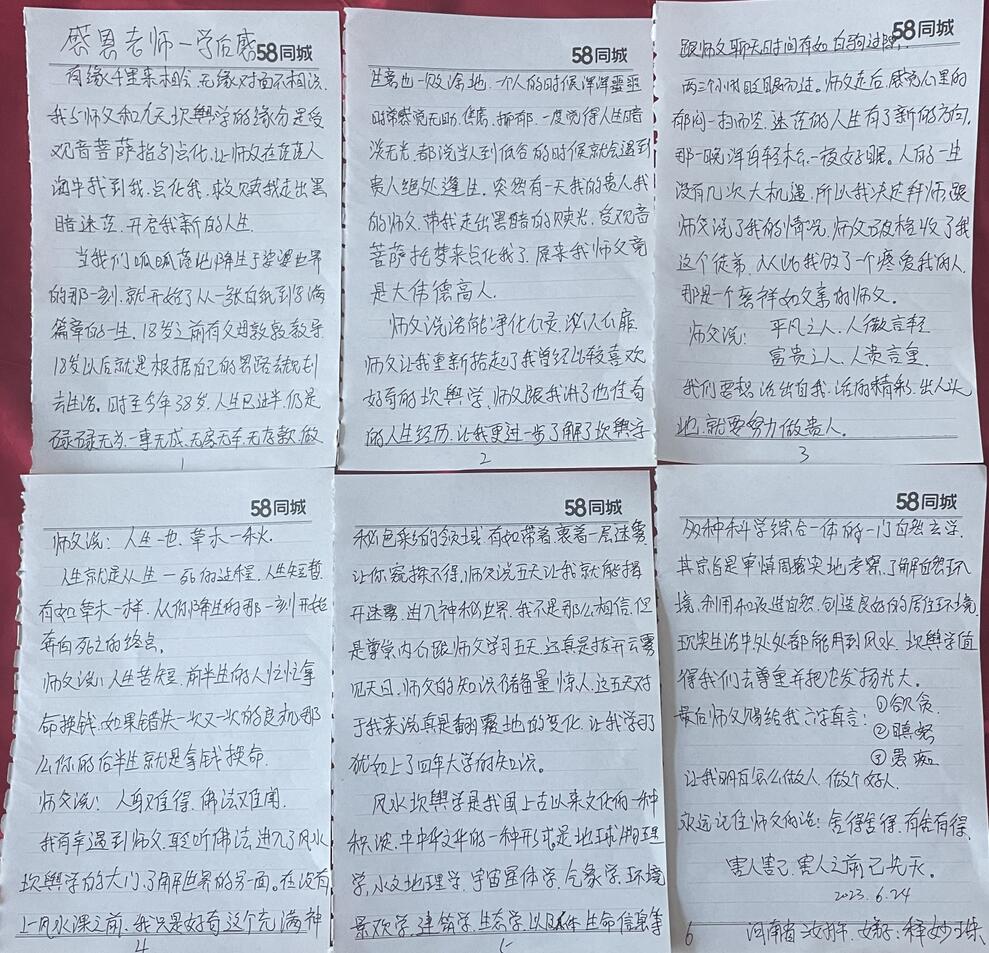 感恩老师一学后感
58同城
有缘千里来相会.无缘对面不相识.
我与师父和九天坎舆学的缘分是受
观音菩萨指引点化.让师父在茫茫人
海中找到我.点化我.救赎我走出黑
暗迷茫.开启我新的人生.
当我们呱呱落地降生于娑婆世界
的那一刻.就开始了从一张白纸到写满
篇章的一生.18岁之前有父母敦敦教导
18岁以后就是根据自己的思路
去生活.时至今年38岁.人生已过半.仍是
碌碌无为.一事无成.无房无车.无存款.做
1
58同城
生意也一败涂地.一个人的时候浑浑噩噩
时常感觉无助.焦虑.抑郁.一度觉得人生暗
淡无光.都说当人到低谷的时候就会遇到
贵人绝处逢生.突然有一天我的贵人我
的师父.带我走出黑暗的赎光.受观音
菩萨托梦来点化我了.原来我师父竟
是大伟德高人.
师父说话能净化心灵.
师父让我重新拾起了我曾经比较喜欢
好奇的坎舆学.师父跟我讲了他佳有
的人生经历.让我更进一步了解了坎舆学
2
58同城
跟师父聊天时间有如白驹过隙.
两三个小时眨眼而过.师父走后.感觉心里的
郁闷一扫而空.迷茫的人生有了新的方向.
那一晚浑身轻松.一夜好眠.人的一生
没有几次大机遇.所以我决定拜师.跟
师父说了我的情况.师父破格收了我
这个徒弟.从此我多了一个疼爱我的人.
那是一个慈祥如父亲的师父.
师父说: 平凡之人.人微言轻
富贵之人.人贵言重
我们要想活出自我.活的精彩.出人头
地.就要努力做贵人。
3
58同城
师父说: 人生也.草木一秋.
人生就是从生一死的过程.人生短暂.
有如草木一样.从你降生的那一刻开始
奔向死亡的终点.
师父说:人生苦短.前半生的人忙忙拿
命换钱.如果错失一次又一次的良机.那
么你的后半生就是拿钱换命.
师父说: 人身难得.佛法难闻.
我有幸遇到师父.聆听佛法.进入了风水
坎舆学的大门.了解世界的另一面。在没有
上风水课之前.我只是好奇这个充满神
4
58同城
秘色彩的领域.有如带着裹着一层迷雾.
让你窥探不得.师父说五天让我就能拨
开迷雾.进入神秘世界.我不是那么相信.但
是掌掌内心跟师父学习五天.还真是拔开云雾
见天日.师父的知识储备量惊人.这五天对
于我来说真是翻覆地的变化.让我学习了
犹如上了四年大学的知识。
风水坎舆学是我国上古以来文化的一种
积淀.中中华文华的一种形式.是地球物理
学.水文地理学.宇宙星体学.气象学.环境
景观学.建筑学.生态学.以及人体生命信息等
5
58同城
多种科学综合一体的一门自然玄学.
其宗旨是审慎周密实地考察.了解自然环
境.利用和改造自然.创造良好的居住环境.
现实生活中处处都能用到风水.坎舆学值
得我们去尊重并把它发扬光大.
最后师父赐给我六字真言: ①欲贪
②瞋怒
③愚痴
让我明白怎么做人.做个好人.
永远记住师父的话: 舍得舍得.有舍有得.
害人害己.害人之前己先灭.
2023.6.24
6 河南省汝州.好:释妙珠